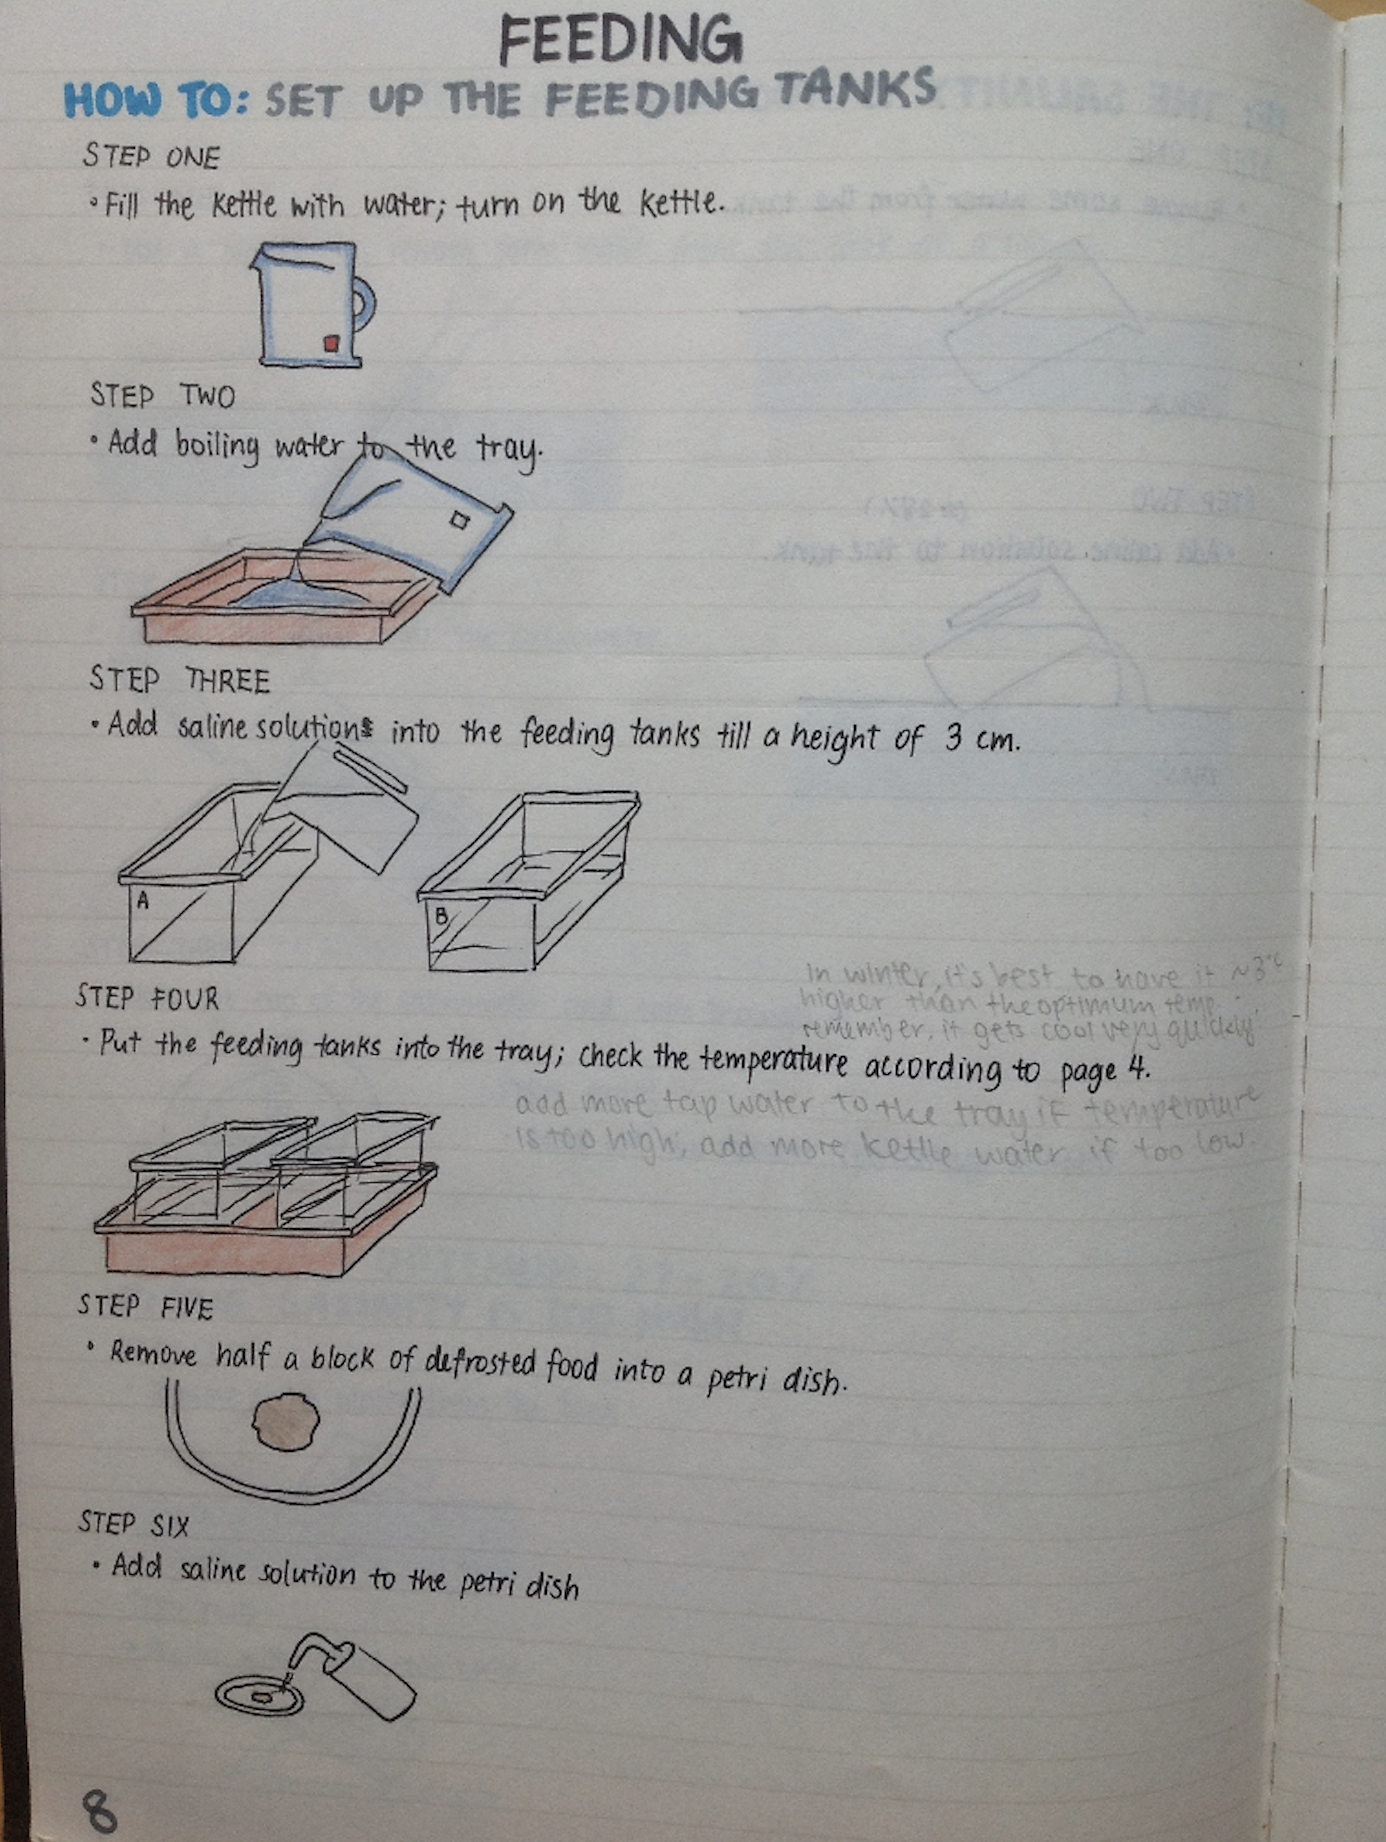 FEEDING
HOW TO: SET UP THE FEEDING TANKS
STEP ONE
• Fill the kettle with water; turn on the kettle.
STEP TWO
• Add boiling water to the tray.
STEP THREE
• Add saline solutions into the feeding tanks till a height of 3 cm.
A
B
In winter, it's best to have it ~3°C
higher than the optimum temp.
remember, it gets cool very quickly!
STEP FOUR
• Put the feeding tanks into the tray; check the temperature according to page 4.
add more tap water to the tray if temperature
is too high; add more kettle water if too low.
STEP FIVE
• Remove half a block of defrosted food into a petri dish.
STEP SIX
• Add saline solution to the petri dish
8